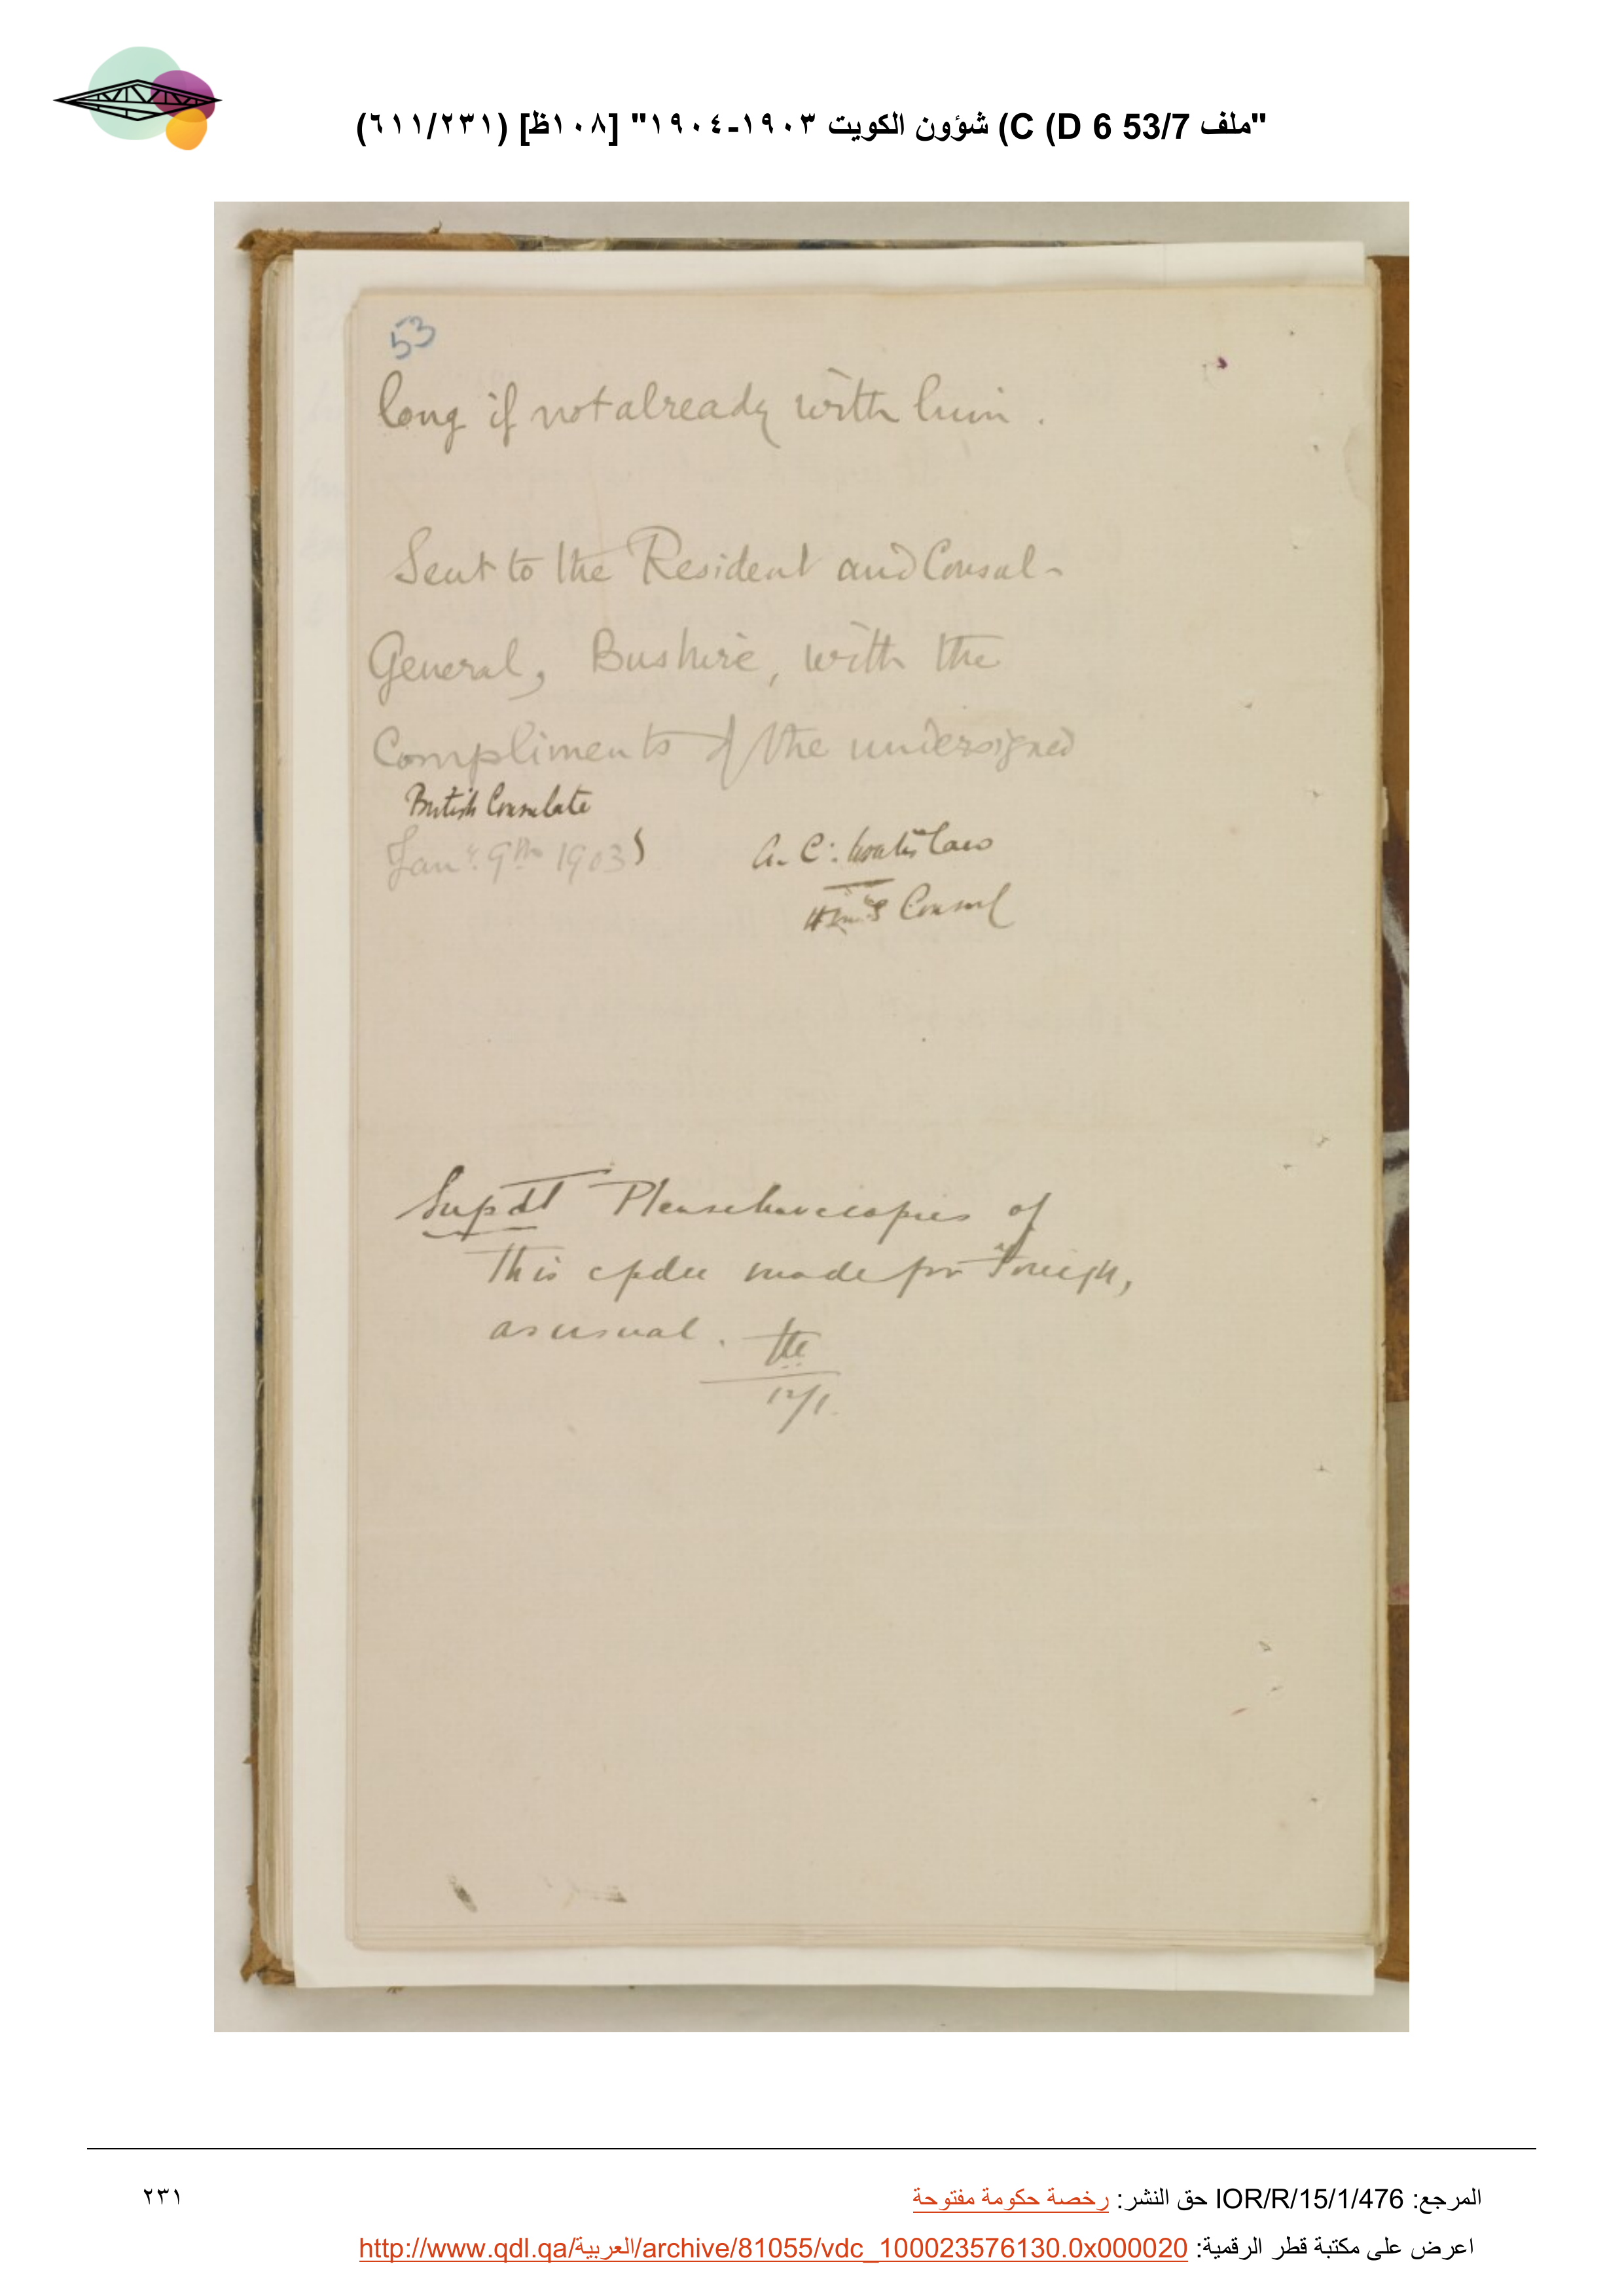 "ملف 53/7 C (D 6) شؤون الكويت ١٩٠٣-١٩٠٤" [١٠٨ظ] (٦١١/٢٣١)
53
long if not already with him.
Sent to the Resident and Consul-
General, Bushire, with the
Compliments of the undersigned
British Consulate
Jany. 9th 1903
A. C. Wratislaw
HBM's Consul
Supdt Please have copies of
this made for Foreign,
as usual.
12/1.
المرجع: IOR/R/15/1/476 حق النشر: رخصة حكومة مفتوحة
٢٣١
اعرض على مكتبة قطر الرقمية: http://www.qdl.qa/العربية/archive/81055/vdc_100023576130.0x000020